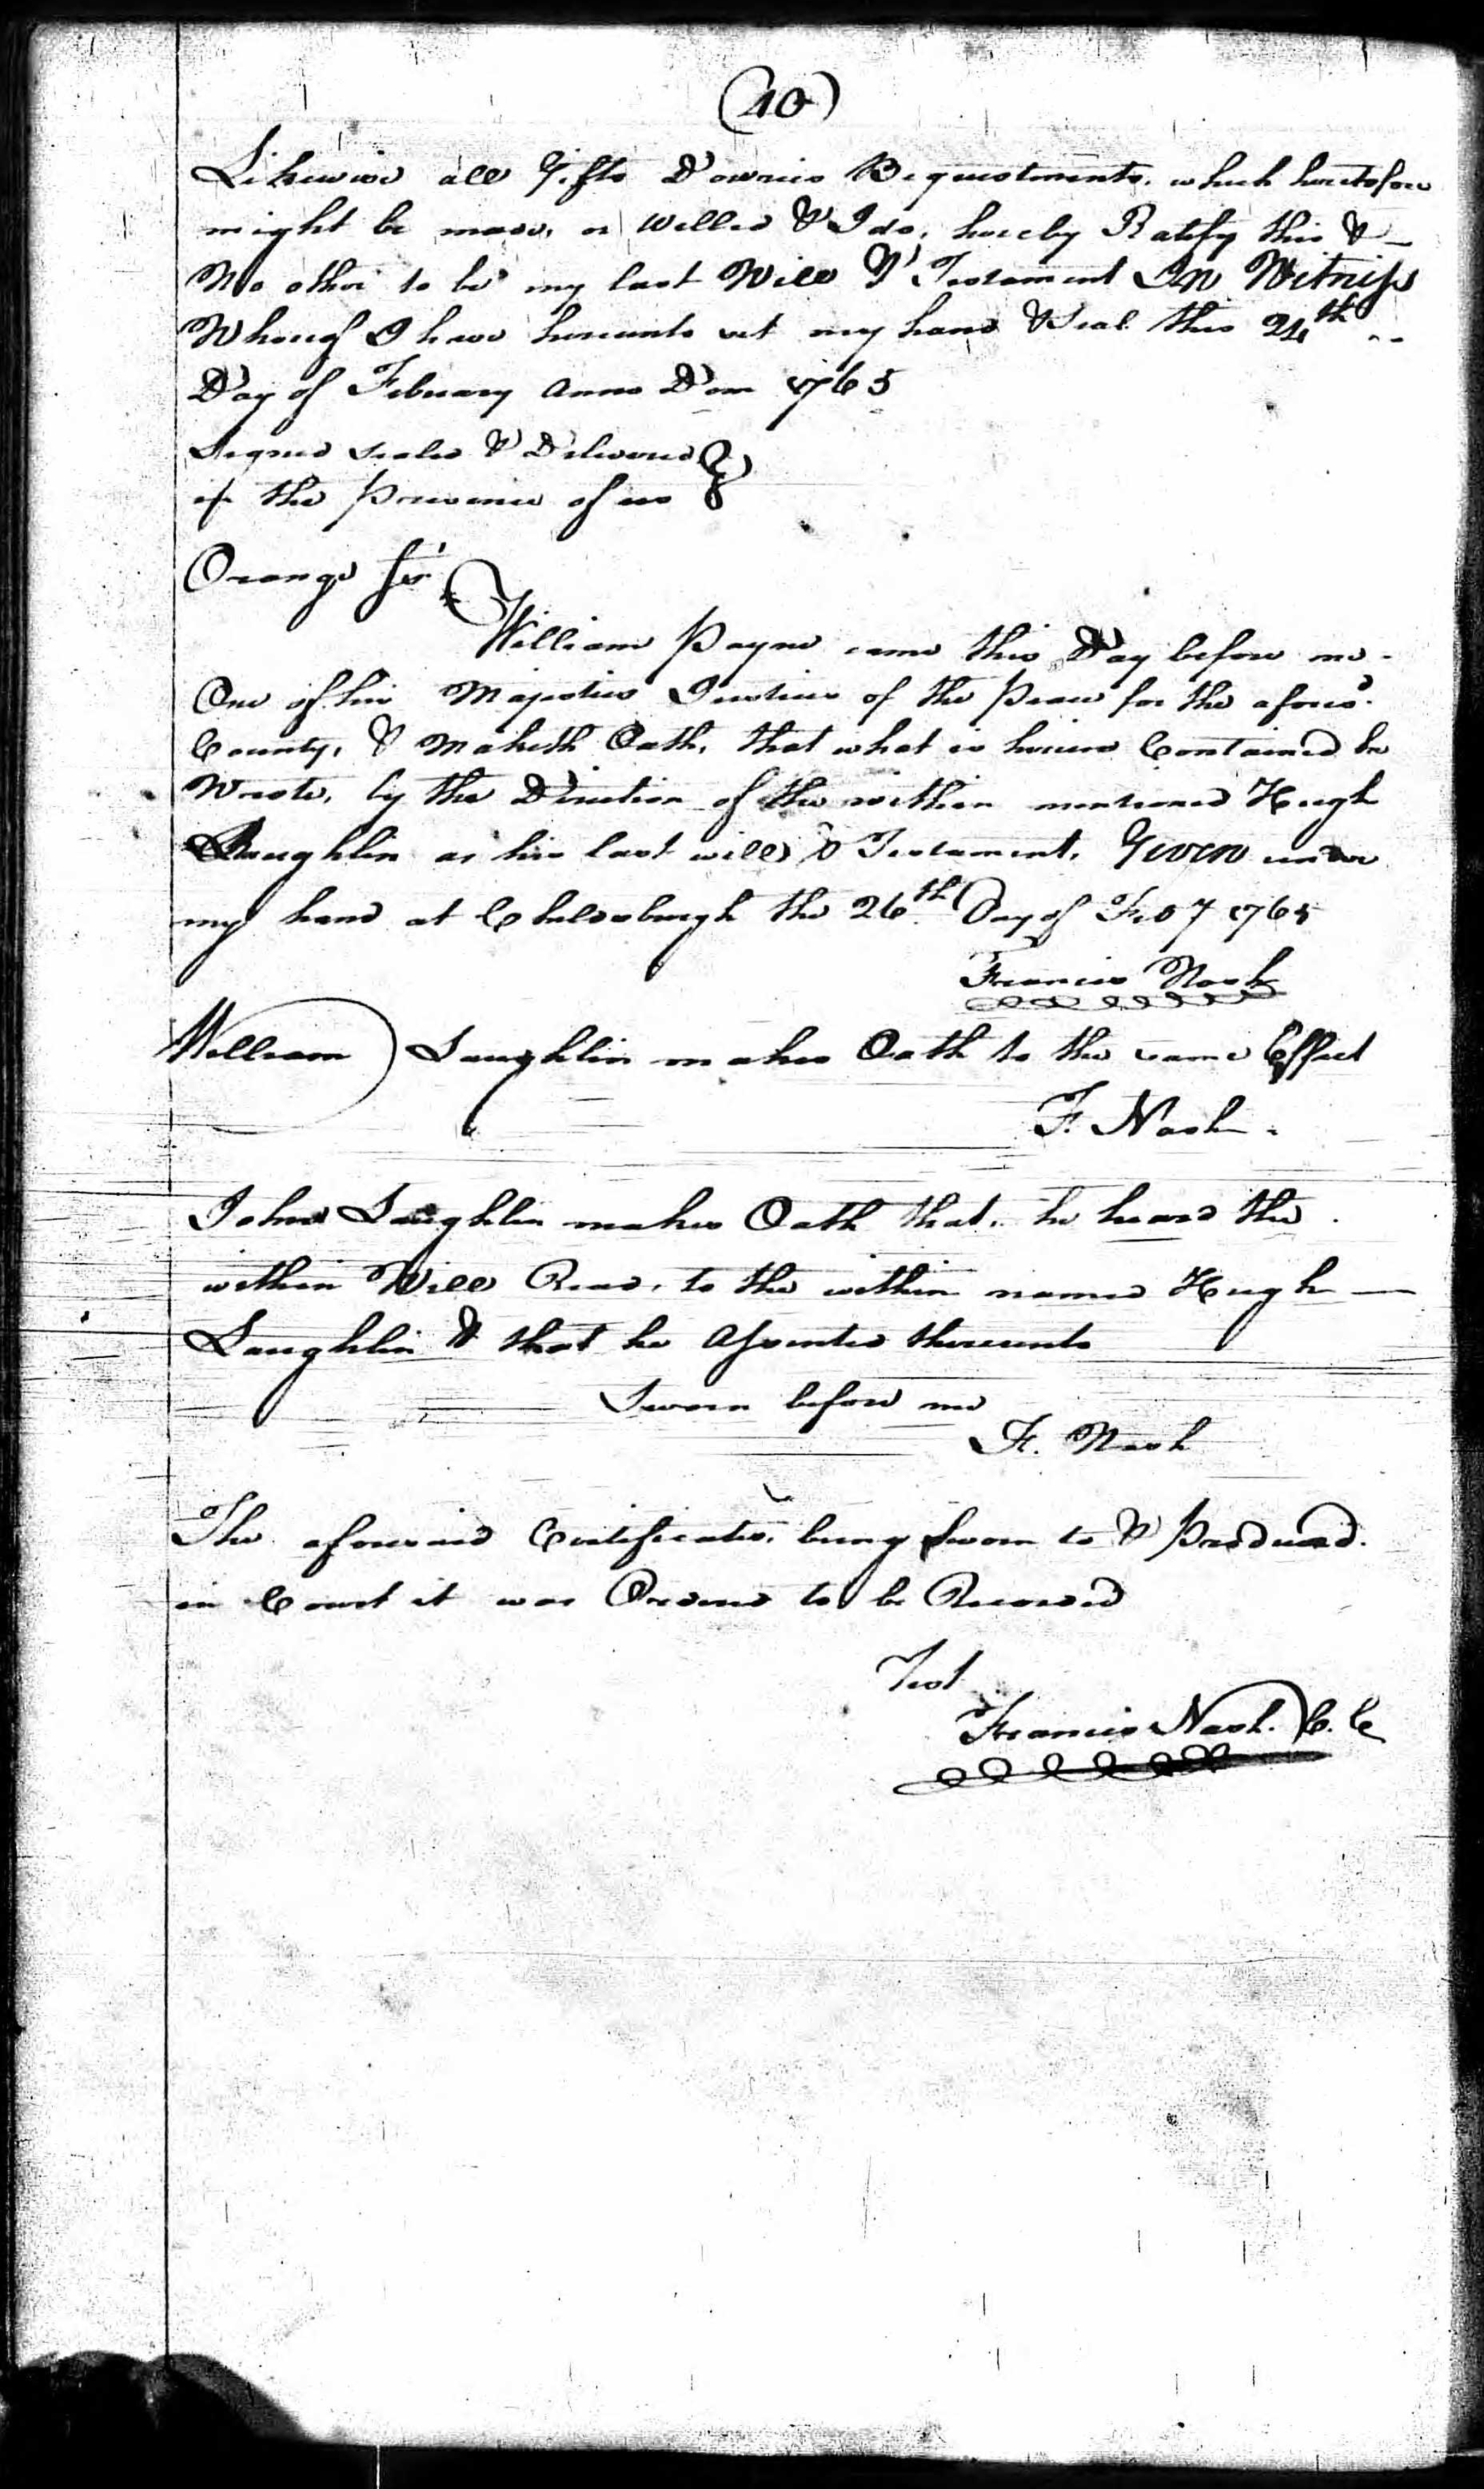 (10)
Likewise all Gifts Dowries Bequestments, which heretofore
might be made, or Willed & I do, hereby Ratify this &
No other to be my last Will & Testament In Witness
Whereof I have hereunto set my hand & Seal this 24th
Day of Febuary Anno Dom 1765
Signed sealed & Delivered
in the Presence of us
Orange Ss.
William Payne came this Day before me
One of his Majesties Justices of the Peace for the aforesd.
County, & Maketh Oath, that what is herein Contained he
Wrote, by the Direction of the within mentioned Hugh
Laughlin as his last will & Testament, Given under
my hand at Childsburgh the 26th Day of Feby 1765
Francis Nash
William Laughlin makes Oath to the same Effect
F. Nash
John Laughlin makes Oath that, he heard the
within Will Read, to the within named Hugh
Laughlin & that he Assented thereunto
Sworn before me
F. Nash
The aforesaid Certificates, being Sworn to & Produced.
in Court it was Ordered to be Recorded
Test
Francis Nash. C. C